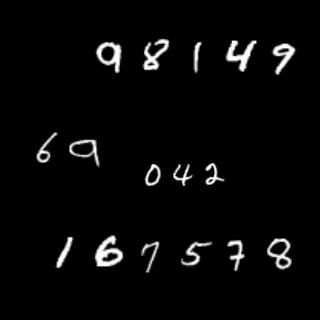 98149
69
042
167578